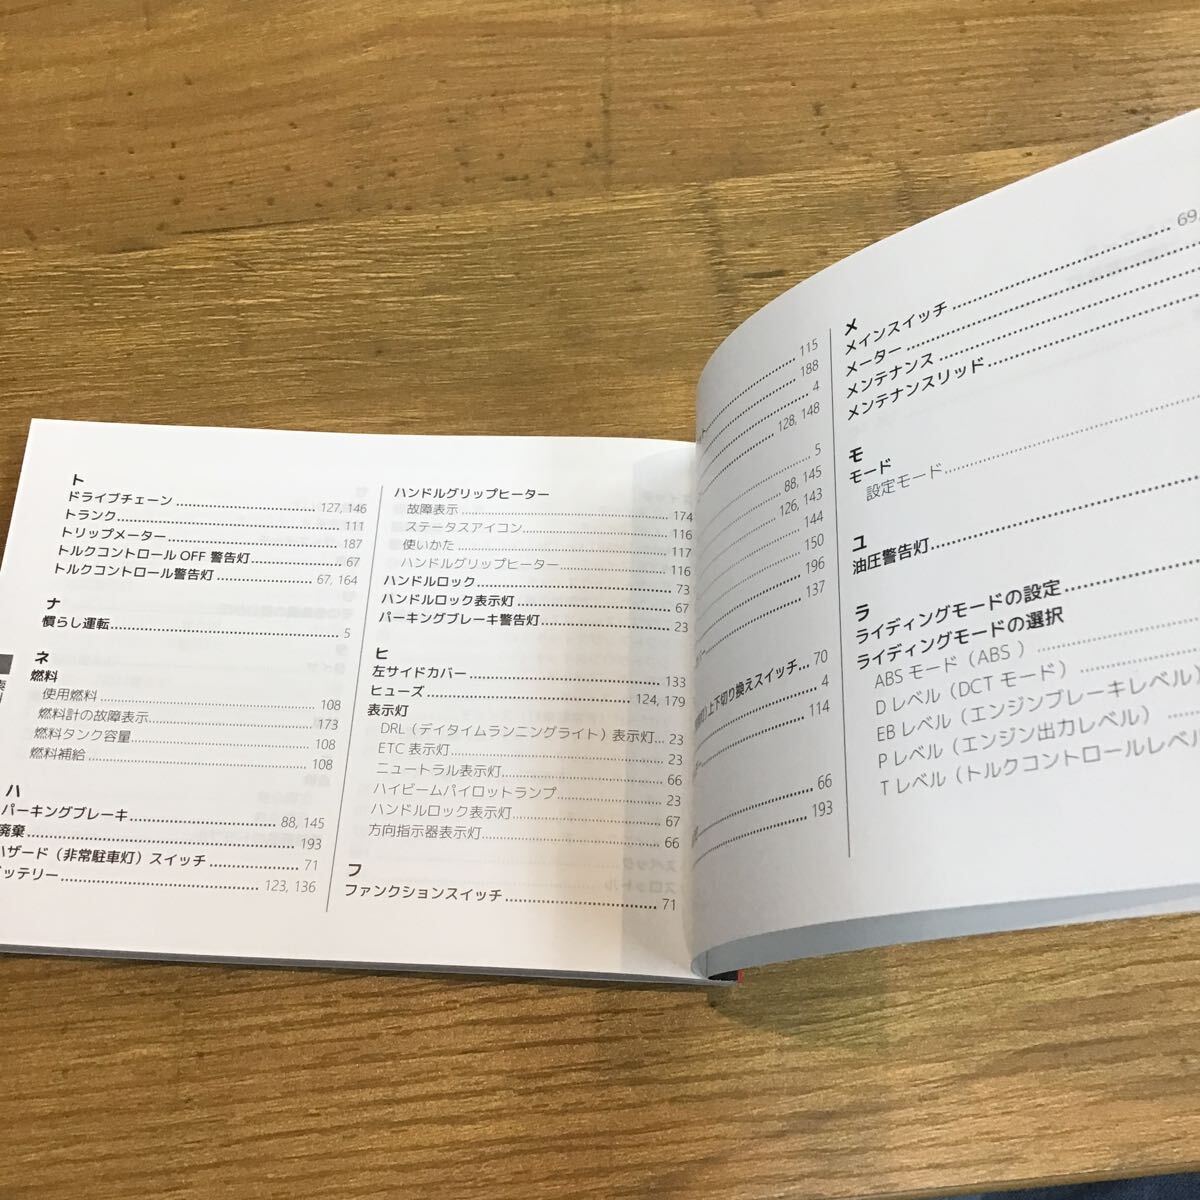 ト
ドライブチェーン 127, 146
トランク 111
トリップメーター 187
トルクコントロール OFF 警告灯 67
トルクコントロール警告灯 67, 164
ナ
慣らし運転 5
ネ
燃料
使用燃料 108
燃料計の故障表示 173
燃料タンク容量 108
燃料補給 108
ハ
パーキングブレーキ 88, 145
廃棄 193
ハザード（非常駐車灯）スイッチ 71
ッテリー 123, 136
ハンドルグリップヒーター
故障表示 174
ステータスアイコン 116
使いかた 117
ハンドルグリップヒーター 116
ハンドルロック 73
ハンドルロック表示灯 67
パーキングブレーキ警告灯 23
ヒ
左サイドカバー 133
ヒューズ 124, 179
表示灯
DRL（デイタイムランニングライト）表示灯 23
ETC 表示灯 23
ニュートラル表示灯 66
ハイビームパイロットランプ 23
ハンドルロック表示灯 67
方向指示器表示灯 66
フ
ファンクションスイッチ 71
115
188
4
128, 148
5
88, 145
126, 143
144
150
196
137
上下切り換えスイッチ 70
4
114
66
193
メ
メインスイッチ 69,
メーター
メンテナンス
メンテナンスリッド
モ
モード
設定モード
ユ
油圧警告灯
ラ
ライディングモードの設定
ライディングモードの選択
ABS モード（ABS ）
D レベル（DCT モード）
EB レベル（エンジンブレーキレベル）
P レベル（エンジン出力レベル）
T レベル（トルクコントロールレベル